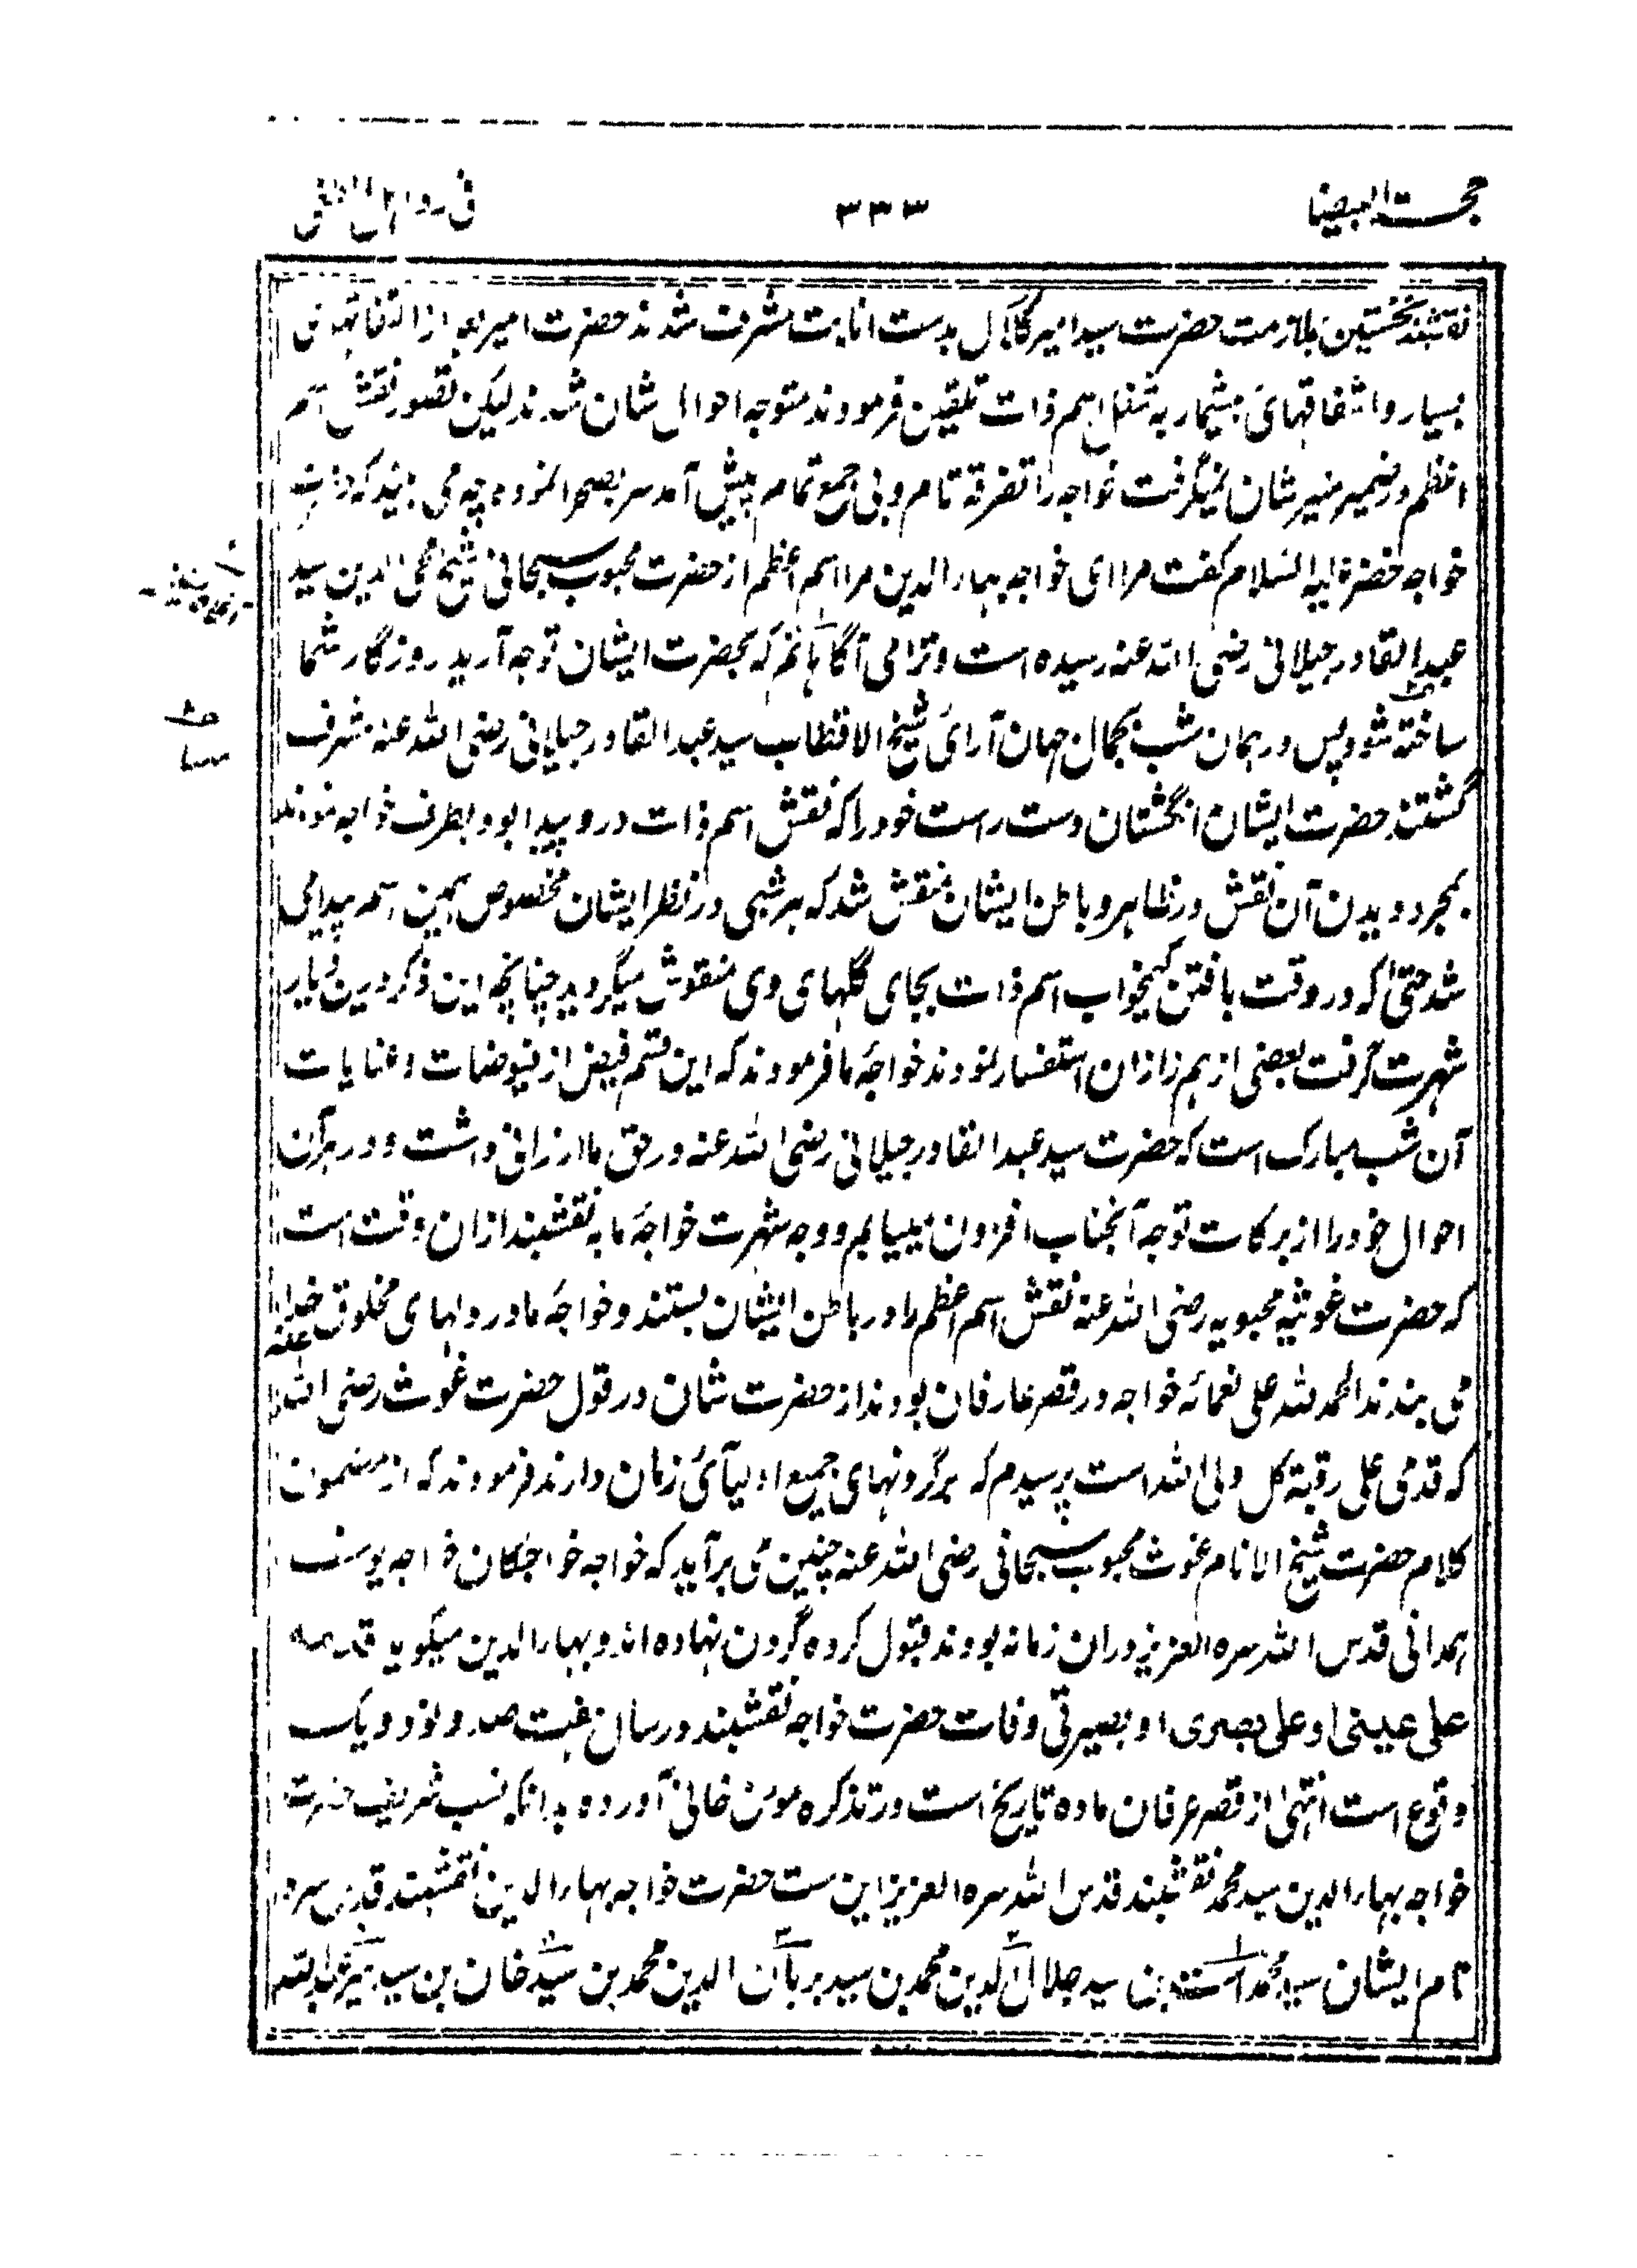 حجت البیضا
۳۳۳
نقشبند نخستین بملازمت حضرت سید امیر کلال بدست انابت مشرف شدند حضرت امیر بعد از التفاتهای
بسیار و اشفاقهای بیشمار به شغل اسم ذات تلقین فرمودند متوجه احوال شان شدند لیکن تصور نقش اسم
اعظم در ضمیر منیر شان نمیگرفت خواجه را تفرقه تام و بی جمع تمام پیش آمد سر بصحرا نموده چه می بیند که
خواجه خضر علیه السلام گفت مرا ای خواجه بهاء الدین مرا اسم اعظم از حضرت محبوب سبحانی شیخ محی الدین سید
عبد القادر جیلانی رضی الله عنه رسیده است و ترا می آگاهانم که بحضرت ایشان توجه آرید روزگار شما
ساخته شود پس در همان شب بجمال جهان آرای شیخ الاقطاب سید عبد القادر جیلانی رضی الله عنه مشرف
گشتند حضرت ایشان انگشتان دست راست خود را که نقش اسم ذات در و پیدا بود بطرف خواجه نمودند
بمجرد دیدن آن نقش در ظاهر و باطن ایشان منقش شد که هر شیی در نظر ایشان مخصوص بهمین اسم پیدا می
شد حتی که در وقت بافتن کمخواب اسم ذات بجای گلهای وی منقوش میگردید چنانچه این ذکر درین دیار
شهرت گرفت بعضی از همزازان استفسار نمودند خواجۀ ما فرمودند که این قسم فیض از فیوضات و عنایات
آن شب مبارک است که حضرت سید عبد القادر جیلانی رضی الله عنه در حق ما ارزانی داشت و در هر آن
احوال خود را از برکات توجه آنجناب افزون مییابم و وجه شهرت خواجۀ ما به نقشبند ازان وقت است
که حضرت غوثیه محبوبیه رضی الله عنه نقش اسم اعظم را در باطن ایشان بستند و خواجۀ ما در دلهای مخلوق خدا
می بندند الحمد لله علی نعمائه خواجه در قصر عارفان بودند از حضرت شان در قول حضرت غوث رضی الله عنه
که قدمی علی رقبة کل ولی الله است پرسیدم که برگردنهای جمیع اولیآی زمان دارند فرمودند که از مضمون
کلام حضرت شیخ الانام غوث محبوب سبحانی رضی الله عنه چنین می برآید که خواجه خواجگان خواجه یوسف
همدانی قدس الله سره العزیز دران زمانه بودند قبول کرده گردن نهاده اند و بهاء الدین میگوید قدمه
علی عینی او علی بصری او بصیرتی وفات حضرت خواجه نقشبند در سال هفت صد و نود و یک
وقوع است انتهی از قصر عرفان ماده تاریخ است در تذکره مومن خانی آورده بدانکه نسب شریف حضرت
خواجه بهاء الدین سید محمد نقشبند قدس الله سره العزیز این ست حضرت خواجه بهاء الدین نقشبند قدس سره
نام ایشان سید محمد است بن سید جلال الدین محمد بن سید برهان الدین محمد بن سید خان بن سید